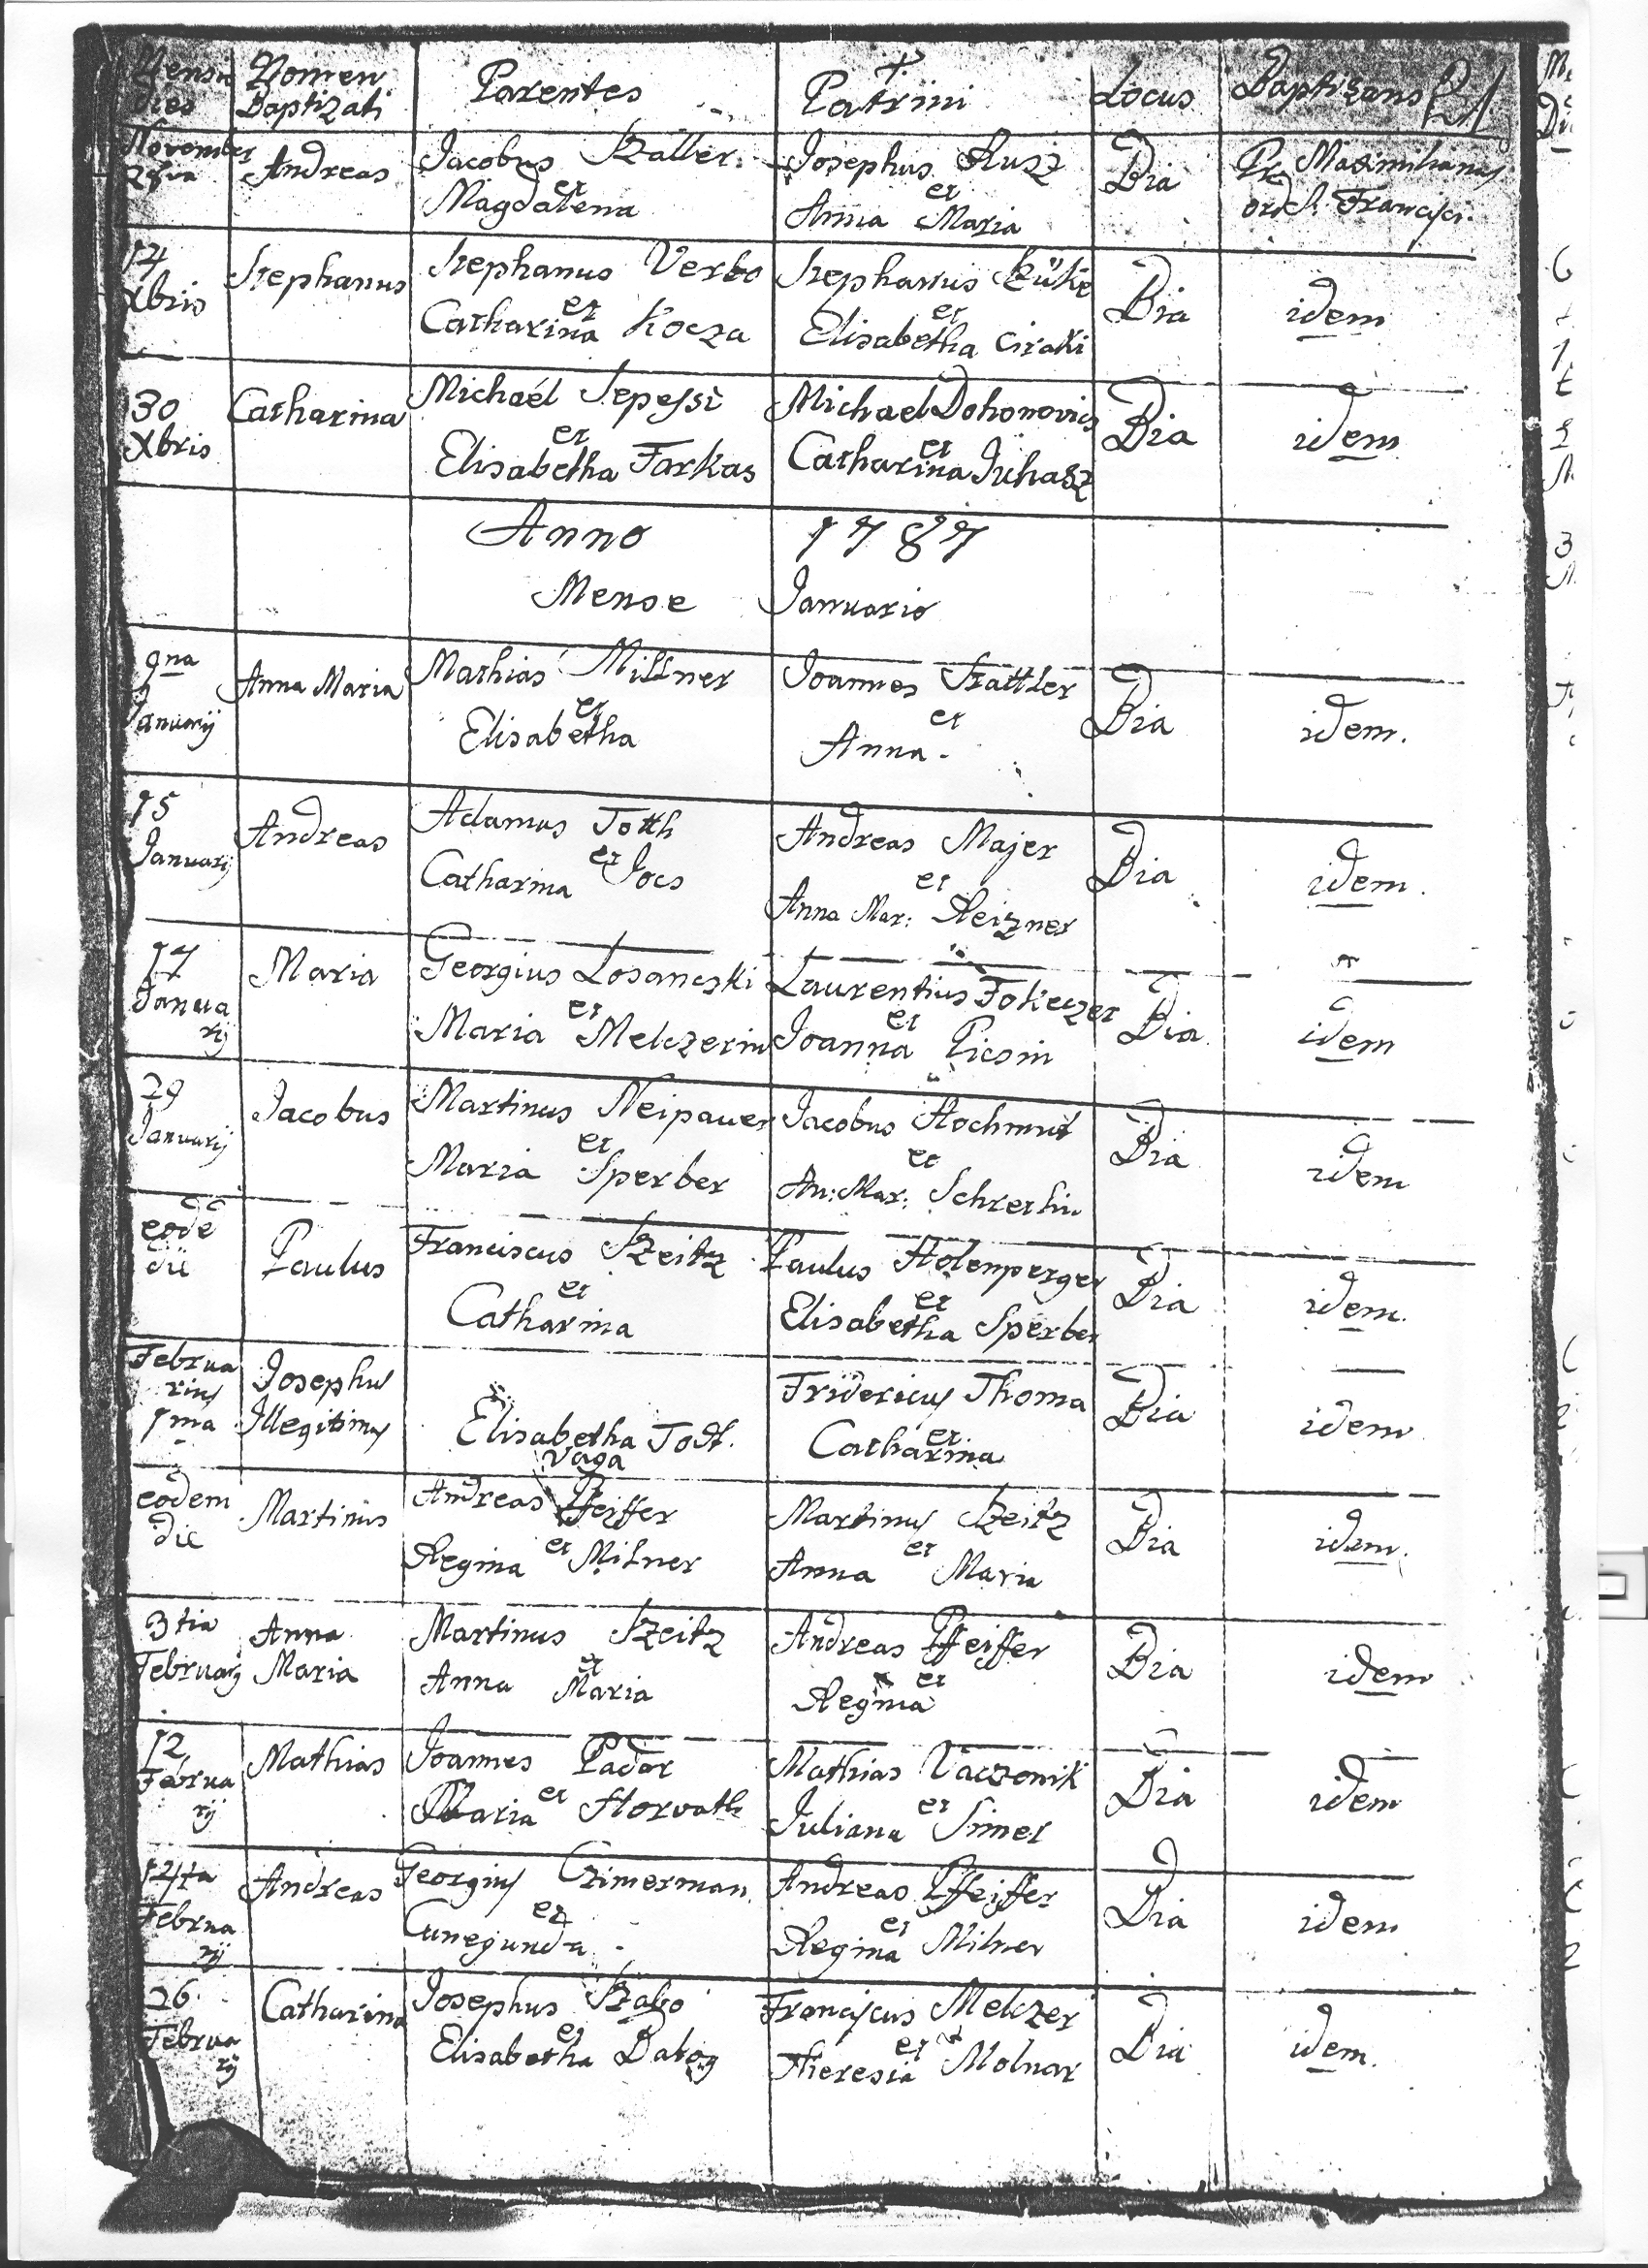 Mensis Nomen Parentes Patrini Locus Baptizans
dies Baptizati
November Andreas Jacobus Szaller Josephus Rusz Bia Pr. Maximilianus
28va et et ord. S. Francisci.
Magdalena Anna Maria
14 Stephanus Stephanus Verbo Stephanus Bia idem
Xbris et et
Catharina Kocza Elisabetha Ciraki
30 Catharina Michaél Sepessi Michael Dohonovics Bia idem
Xbris et et
Elisabetha Farkas Catharina Juhasz
Anno 1787
Mense Januario
Anna Maria Mathias Millner Joannes Stattler Bia idem.
Januarij et et
Elisabetha Anna
15 Andreas Adamus Totth Andreas Majer Bia idem.
Januarij et et
Catharina Jocs Anna Mar: Reizner
17 Maria Georgius Losancski Laurentius Tokeczer Bia idem
Janua et et
rij Maria Melczerin Joanna Picsin
29 Jacobus Martinus Neipauer Jacobus Hochmut Bia idem
Januarij et et
Maria Sperber An: Mar: Schrerlin
eodē Paulus Franciscus Szeitz Paulus Holenperger Bia idem.
die et et
Catharina Elisabetha Sperber
Februa Josephus Fridericus Thoma Bia idem
rius Illegitimus Elisabetha Todt. et
1ma Vaga Catharina
eodem Martinus Andreas Pfeiffer Martinus Szeitz Bia idem.
die et et
Regina Milner Anna Maria
3tia Anna Martinus Szeitz Andreas Pfeiffer Bia idem
Februarij Maria et et
Anna Maria Regina
12 Mathias Joannes Pador Mathias Vaczonik Bia idem
Februa et et
rij Maria Horvath Juliana Simel
Andreas Georgius Czimerman Andreas Pfeiffer Bia idem
Februa et et
rij Cunegunda Regina Milner
26 Catharina Josephus Szabo Franciscus Melczer Bia idem.
Februa et et
rij Elisabetha Theresia Molnar